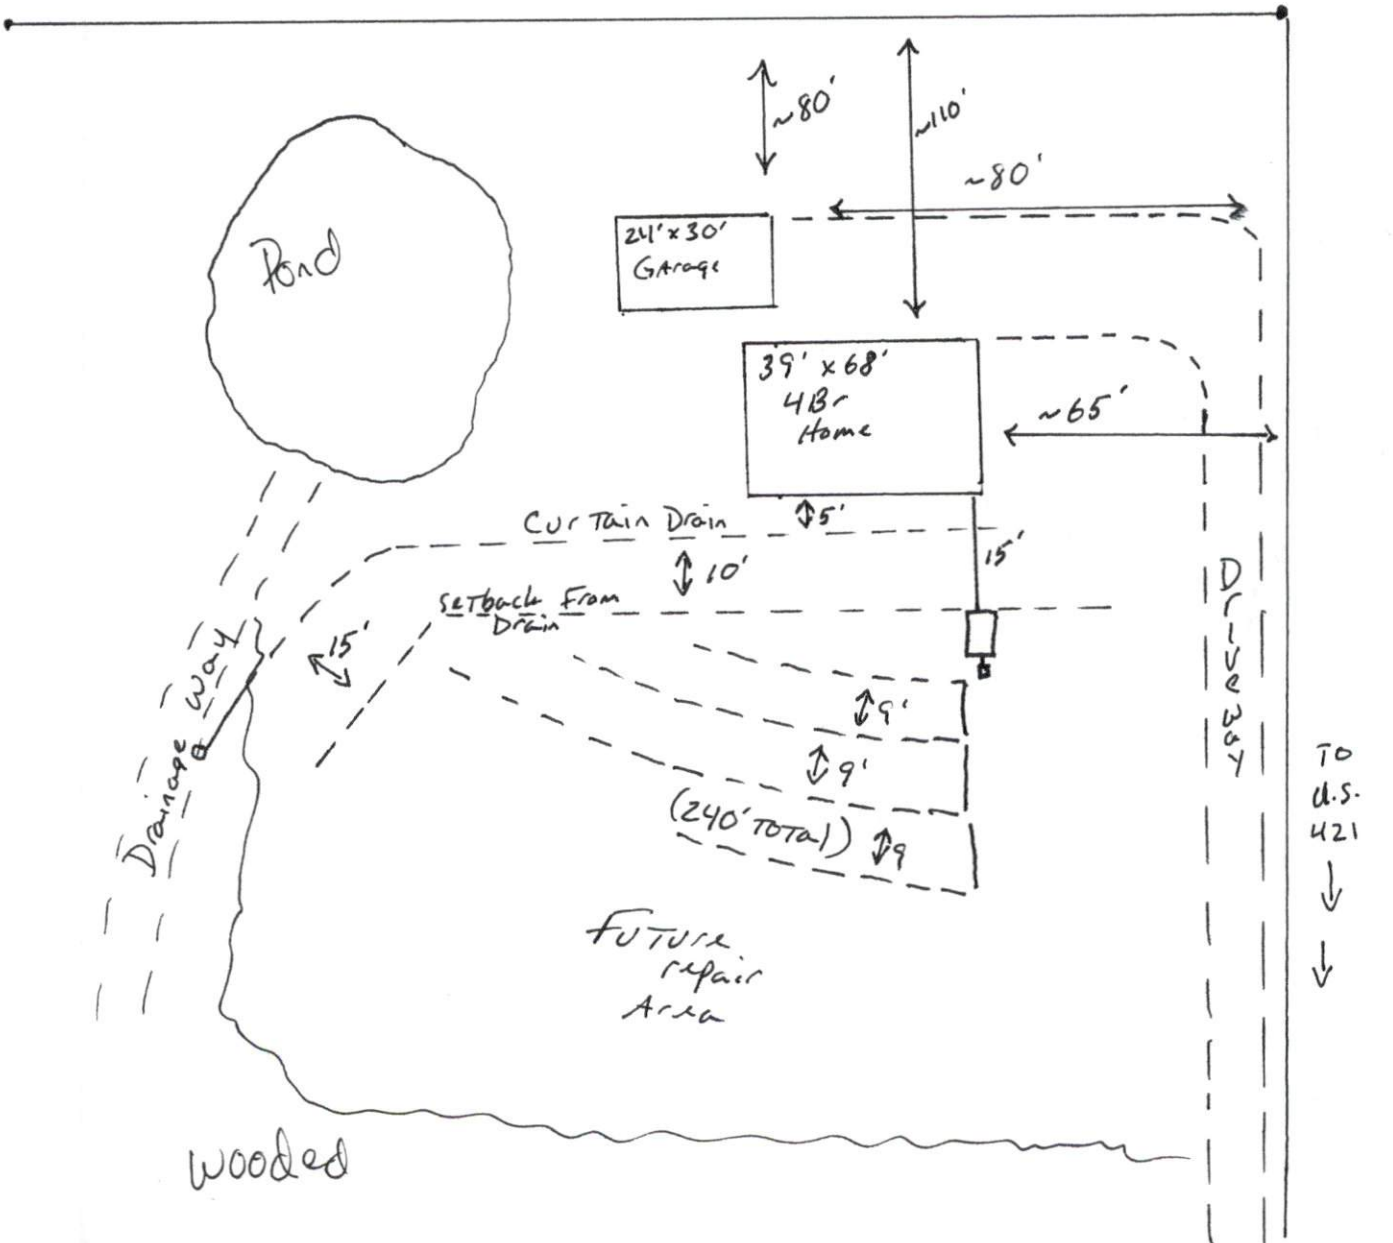 ~80'
~110'
~80'
24' x 30'
Garage
Pond
39' x 68'
4Br
Home
~65'
Curtain Drain
5'
15'
10'
Setback From
Drain
15'
Drainage Way
Driveway
9'
9'
(240' Total)
9
To
U.S.
421
Future
repair
Area
Wooded